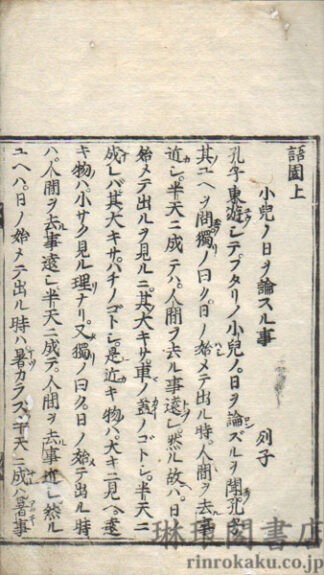 語園上
小兒ノ日ヲ論スル事 列子
孔子東遊シテフタリノ小兒ノ日ヲ論ズルヲ聞孔子
其ユヘヲ問獨ノ曰ク日ノ始メテ出ル時人間ヲ去事
近シ半天ニ成テハ人間ヲ去ル事遠シ然ル故ハ日ノ
始メテ出ルヲ見ルニ其大キサ車ノ蓋ノゴトシ半天ニ
成レバ其大キサハチノゴトシ是近キ物ハ大キニ見ヘ遠
キ物ハ小サク見ル理ナリ又獨ノ曰ク日ノ始テ出ル時
ハ人間ヲ去事遠シ半天ニ成テ人間ヲ去ル事近シ然ル
ユヘハ日ノ始メテ出ル時ハ暑カラズ半天ニ成ハ暑事
琳琅閣書店
rinrokaku.co.jp